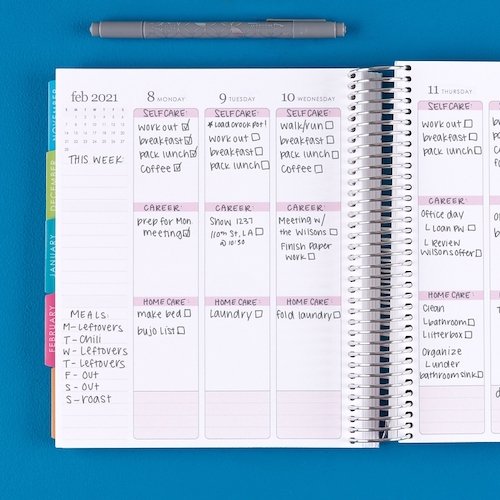 NOVEMBER
DECEMBER
JANUARY
FEBRUARY
feb 2021
THIS WEEK:
MEALS:
M-Leftovers
T-Chili
W-Leftovers
T-Leftovers
F-out
S-out
S-roast
8 MONDAY
SELFCARE:
work out
breakfast
pack lunch
coffee
CAREER:
prep for Mon.
meeting
HOME CARE:
make bed
bujo list
9 TUESDAY
SELFCARE:
* Load crock pot!
work out
breakfast
pack lunch
CAREER:
Show 1237
110th St, LA
@ 10:30
HOME CARE:
laundry
10 WEDNESDAY
SELFCARE:
walk/run
breakfast
pack lunch
Coffee
CAREER:
Meeting w/
the Wilsons
Finish Paper
work
HOME CARE:
fold laundry
11 THURSDAY
SELFCARE:
work out
breakfast
pack lunch
CAREER:
Office day
L Loan PW
L Review
Wilsons offer
HOME CARE:
Clean
L bathroom
L litterbox
Organize
L under
bathroom sink